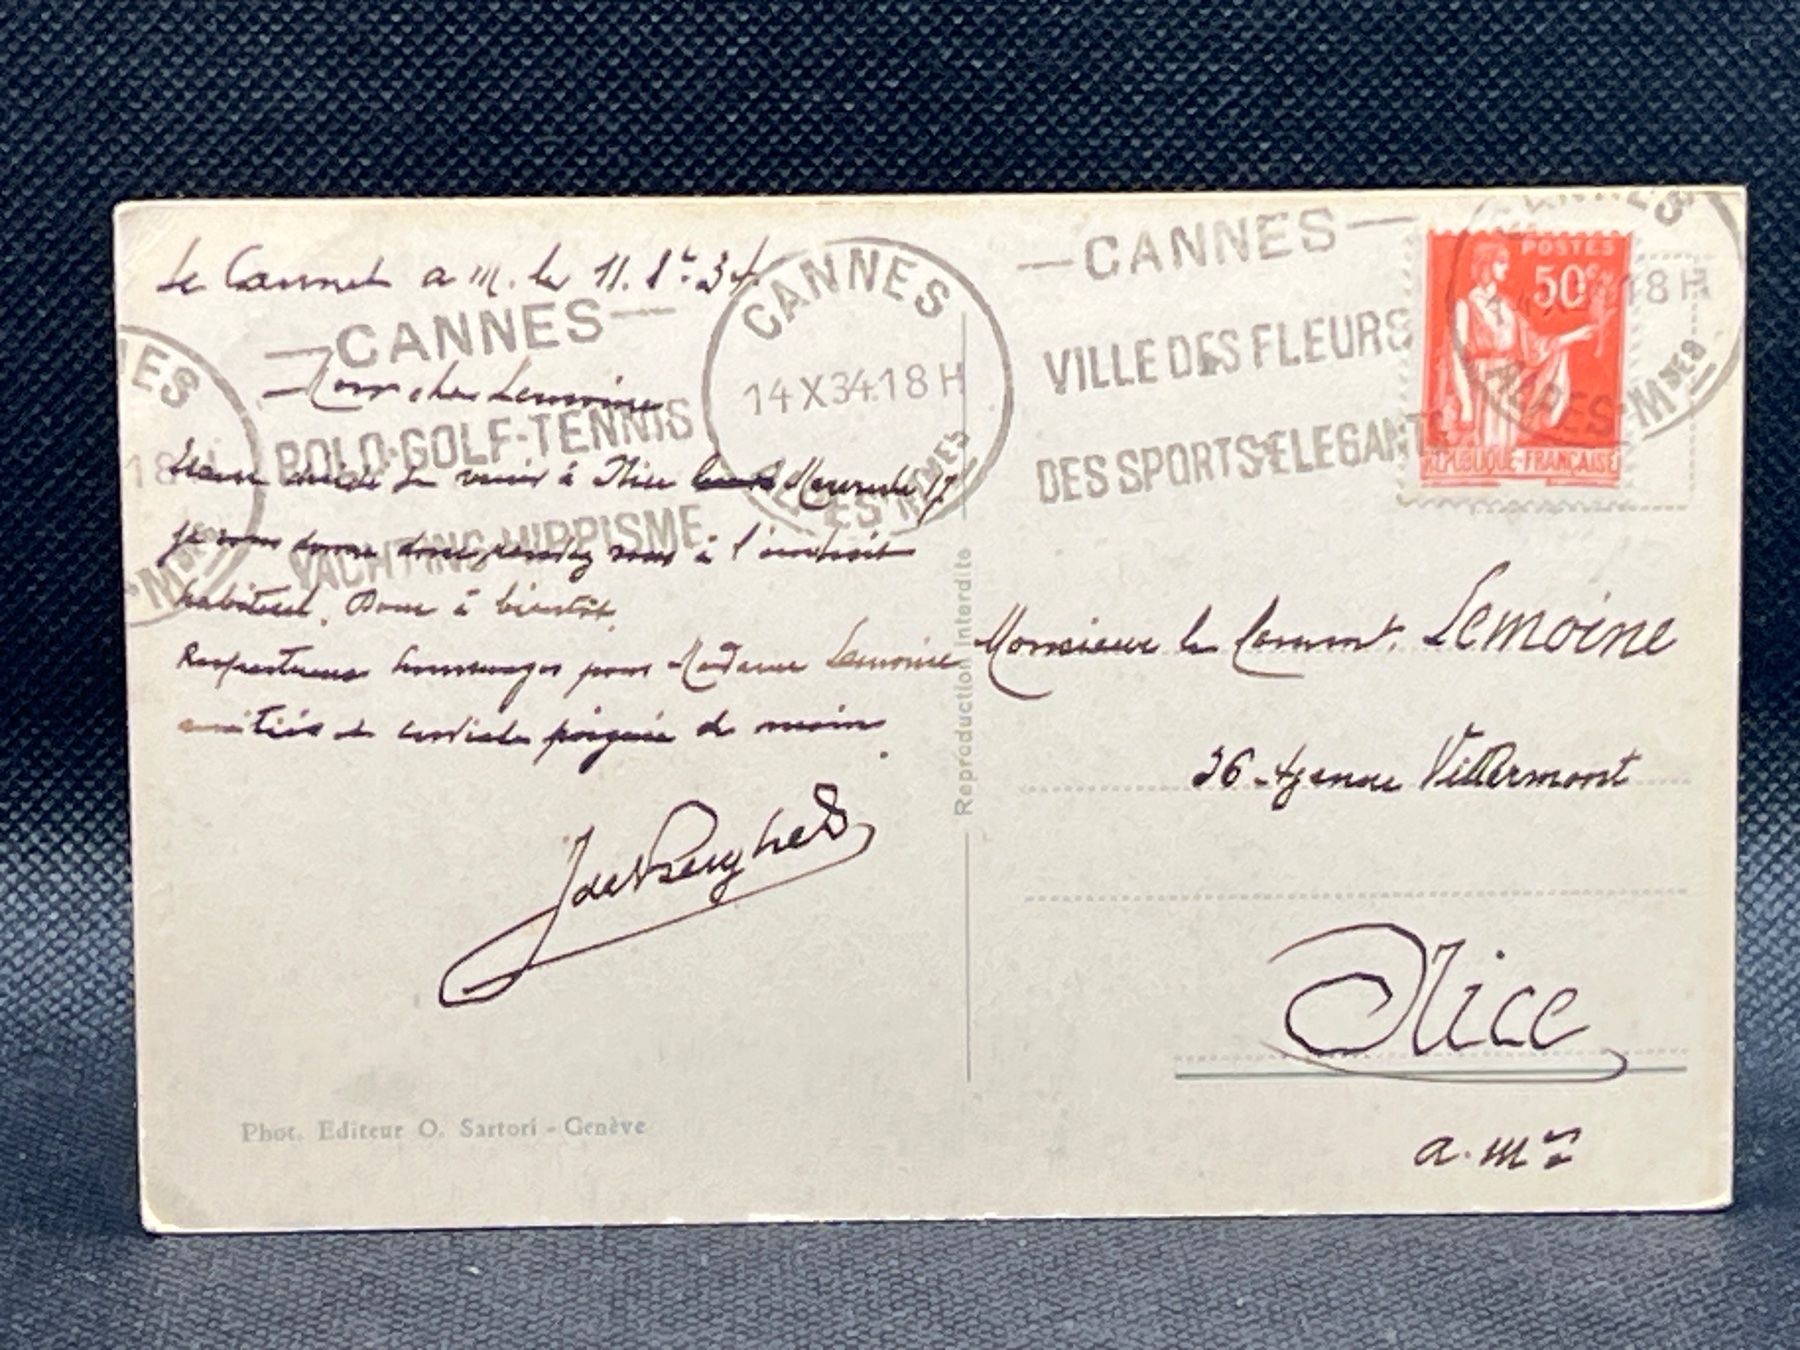 Le Cannet a M. le 11. 34.
CANNES
Mon cher Lemoine
POLO-GOLF-TENNIS
décidé de venir à Nice Mercredi 17
YACHTING HIPPISME
je vous donne donc rendez vous à l'endroit
habituel. Donc à bientôt.
Respectueux hommages pour Madame Lemoine
amitiés et cordiale poignée de main.
Phot. Editeur O. Sartori - Genève
CANNES
14 X 34 18 H
ALPES-Mmes
Reproduction interdite
CANNES
VILLE DES FLEURS
DES SPORTS ELEGANTS
POSTES
50c
REPUBLIQUE-FRANÇAISE
CANNES
18 H
ALPES-Mmes
Monsieur le Lemoine
26 Avenue Villermont
Nice
a. Mes